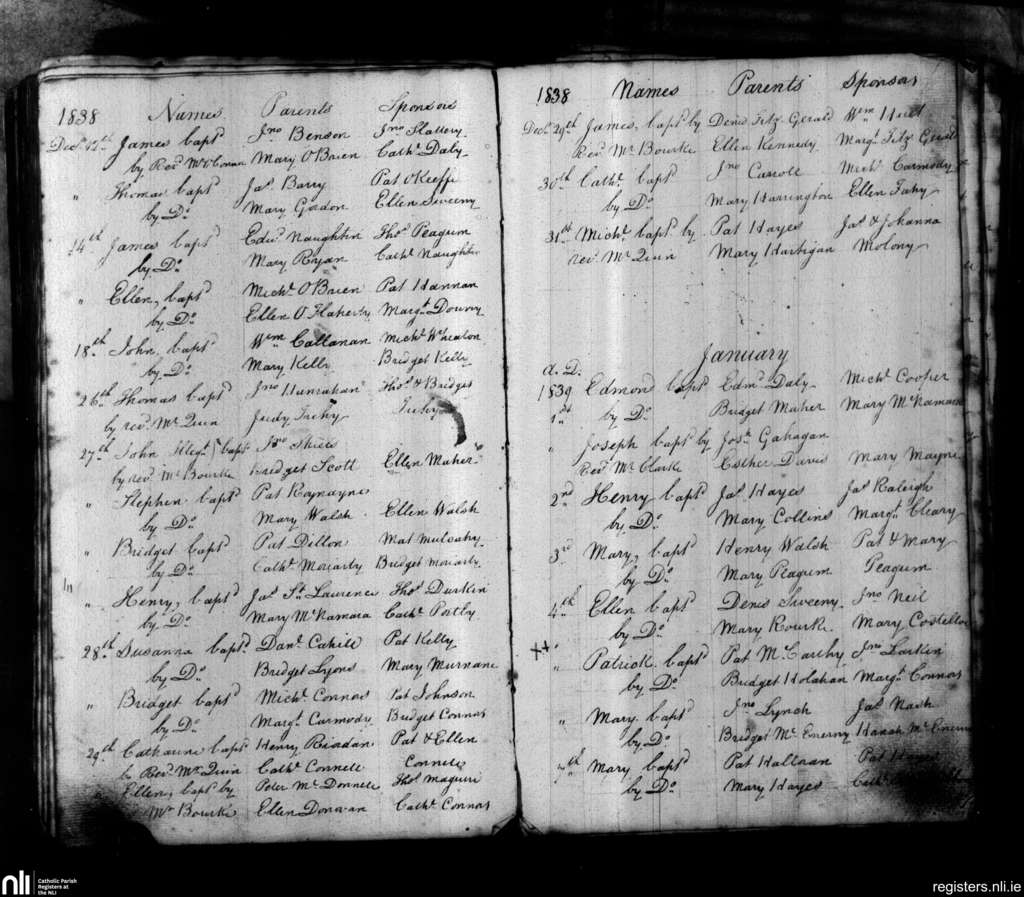 1838 Names Parents Sponsors
Decr. 12th James bapt Jno Benson Jno Slattery
by Revd Mary O'Brien Cathe Daly
" Thomas bapt Jas Barry Pat O'Keeffe
by Do Mary Gordon Ellen Sweeny
14th James bapt Edwd Naughtin Thos Peagum
by Do Mary Ryan Cathe Naughtin
" Ellen, bapt Michl O'Brien Pat Hannan
by Do Ellen O'Flaherty Margt Downy
18th John bapt Wm Callanan Michl Whealon
by Do Mary Kelly Bridget Kelly
26th Thomas bapt Jno Hanrahan Thos & Bridget
by revd Mr Quin Judy Tuchy Tuchy
27th John bapt
by revd Mr Bourke Bridget Scott Ellen Maher
" Stephen bapt Pat Raynayne
by Do Mary Walsh Ellen Walsh
" Bridget bapt Pat Dillon Mat Mulcahy
by Do Cathe Moriarty Bridget Moriarty
" Henry, bapt Jas St Laurence Thos Durkin
by Do Mary McNamara Cathe
28th Susanna bapt Danl Cahill Pat Kelly
by Do Bridget Lyons Mary Murnane
" Bridget bapt Michl Connors Pat Johnson
by Do Margt Carmody Bridget Connors
29th Catharine bapt Henry Riordan Pat & Ellen
by Revd Mr Quin Cathe Connell Connell
Ellen, bapt by Peter McDonnell Thos Maguire
Mr Bourke Ellen Donovan Cathe Connors
1838 Names Parents Sponsors
Decr 29th James, bapt by Denis Fitz Gerald Wm
Revd Mr Bourke Ellen Kennedy Margt Fitz Gerald
30th Cathe bapt Jno Carroll Michl Carmody
by Do Mary Harrington Ellen Fahy
31st Michl bapt by Pat Hayes Jas & Johanna
revd Mr Quinn Mary Hartigan Molony
January
A. D.
1839 Edmond bapt Edmd Daly Michl Cooper
1st by Do Bridget Maher Mary McNamara
" Joseph bapt by Josh Gahagan
Revd Mr Clarke Esther Davis Mary Mayne
2nd Henry bapt Jas Hayes Jas Raleigh
by Do Mary Collins Margt Cleary
3rd Mary, bapt Henry Walsh Pat & Mary
by Do Mary Peagum Peagum
4th Ellen bapt Denis Sweeny Jno Neil
by Do Mary Rourke Mary Costelloe
" Patrick bapt Pat McCarthy Jno Larkin
by Do Bridget Holahan Margt Connors
" Mary bapt Jno Lynch Jas Nash
by Do Bridget McEnerny Hanah McEnerny
7th Mary bapt Pat Hallinan Pat
by Do Mary Hayes Cathe
nli Catholic Parish
Registers at
the NLI
registers.nli.ie